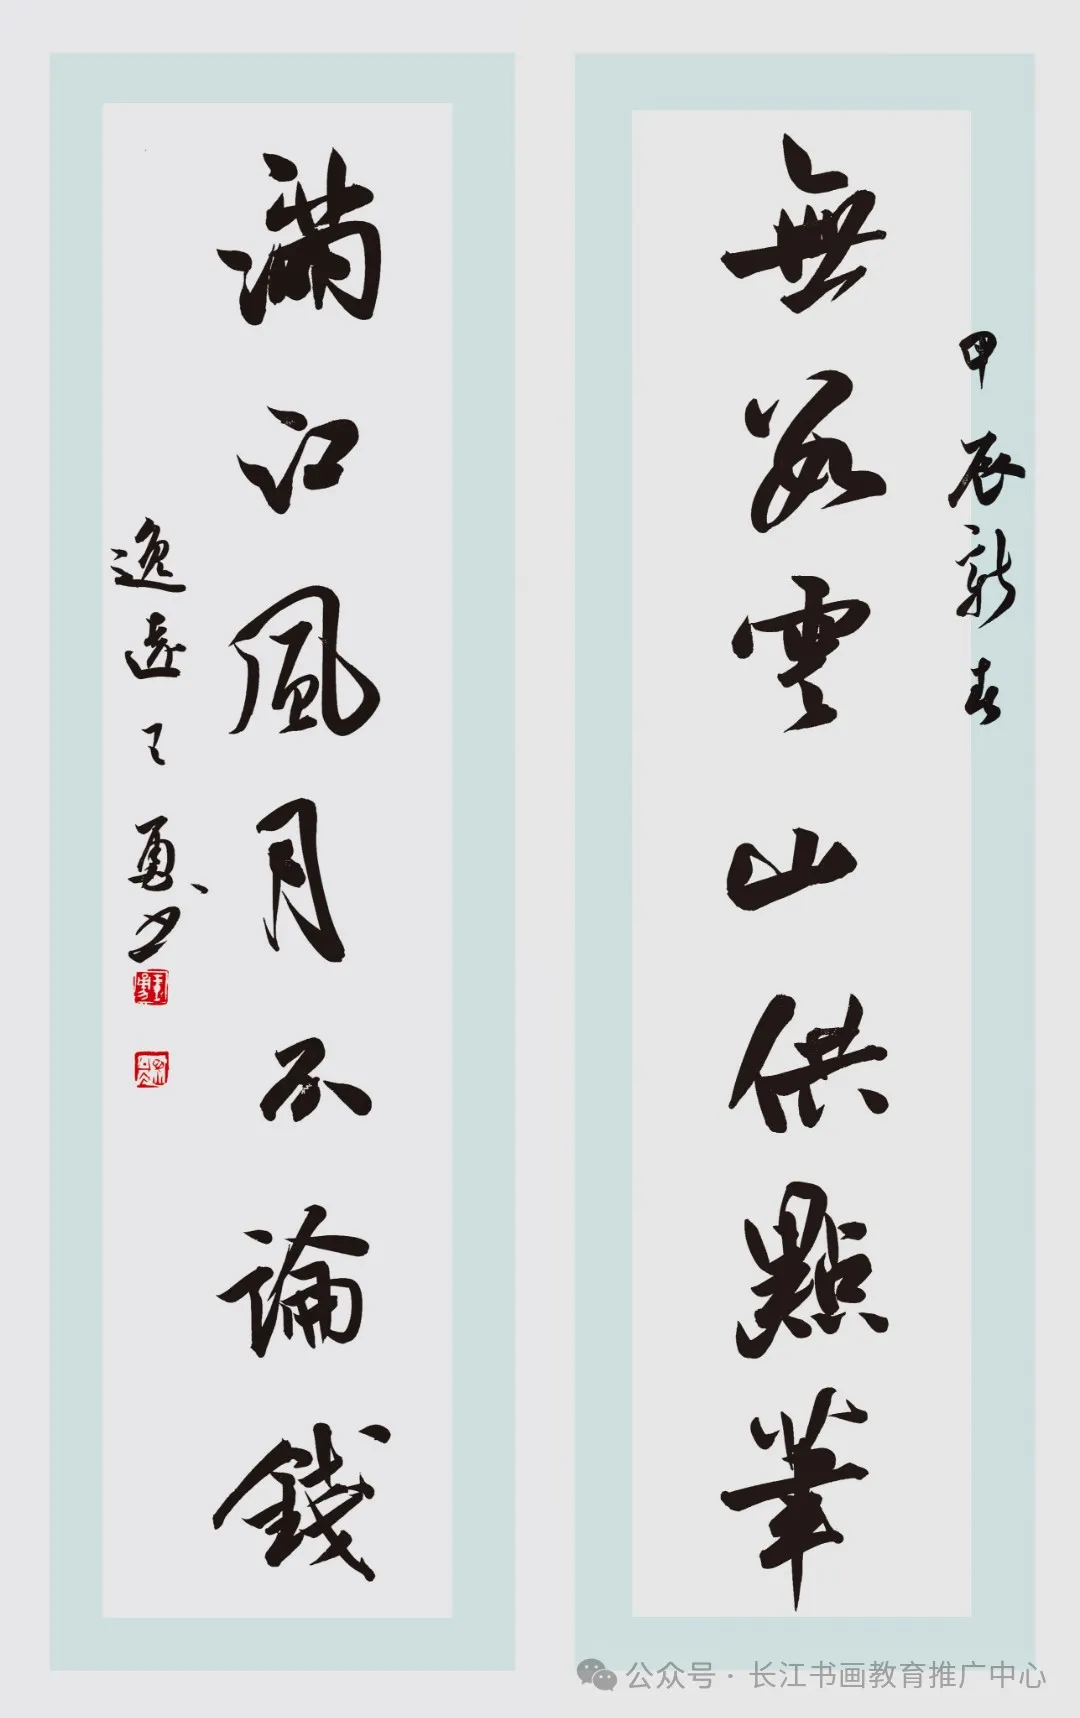 甲辰新春
無數雲山供點筆
滿江風月不論錢
逸遠王勇書
公众号 · 长江书画教育推广中心